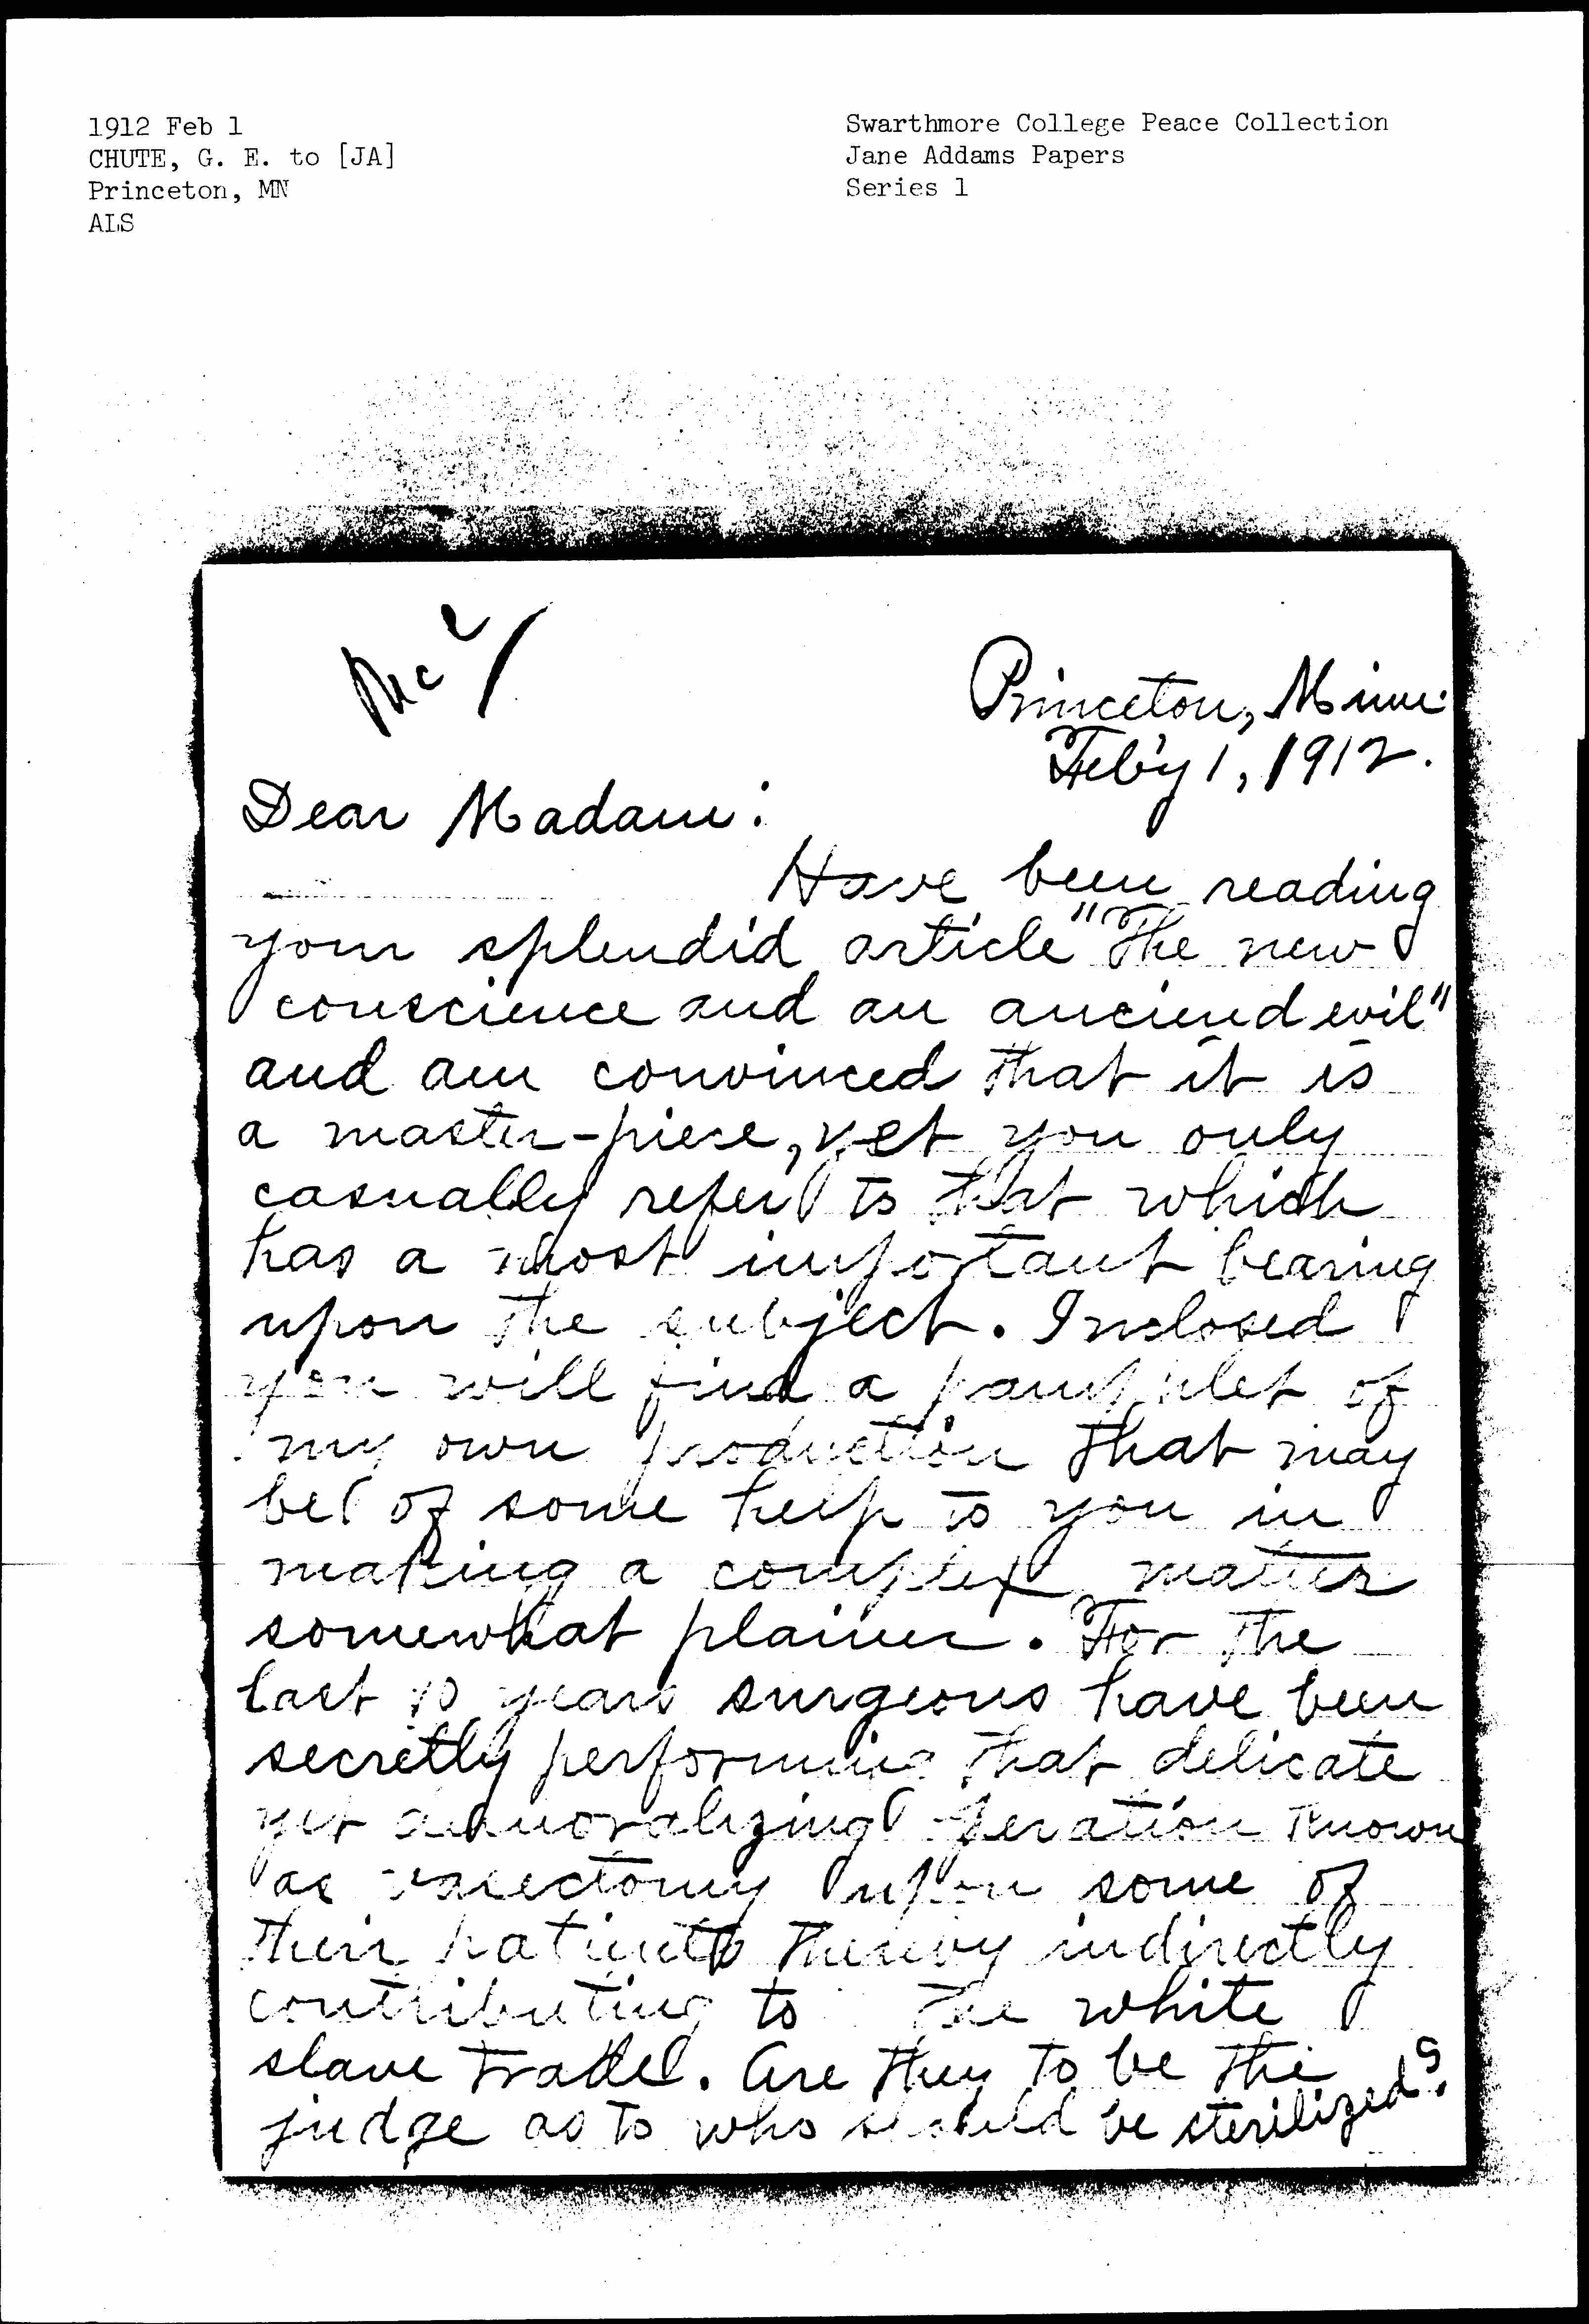 1912 Feb 1
CHUTE, G. E. to [JA]
Princeton, MN
ALS
Swarthmore College Peace Collection
Jane Addams Papers
Series 1
Princeton, Minn.
Feb'y 1, 1912.
Dear Madam:
Have been reading
your splendid article "The new
conscience and an anciend evil"
and am convinced that it is
a master-piese, yet you only
casually refer to that which
has a most important bearing
upon the subject. Inclosed
you will find a pamphlet of
my own production that may
be of some help to you in
making a complex matter
somewhat plainer. For the
last 10 years surgeons have been
secretly performing that delicate
yet demoralizing operation known
as vasectomy upon some of
their patients thereby indirectly
contributing to the white
slave trade. Are they to be the
judge as to who should be sterilized?